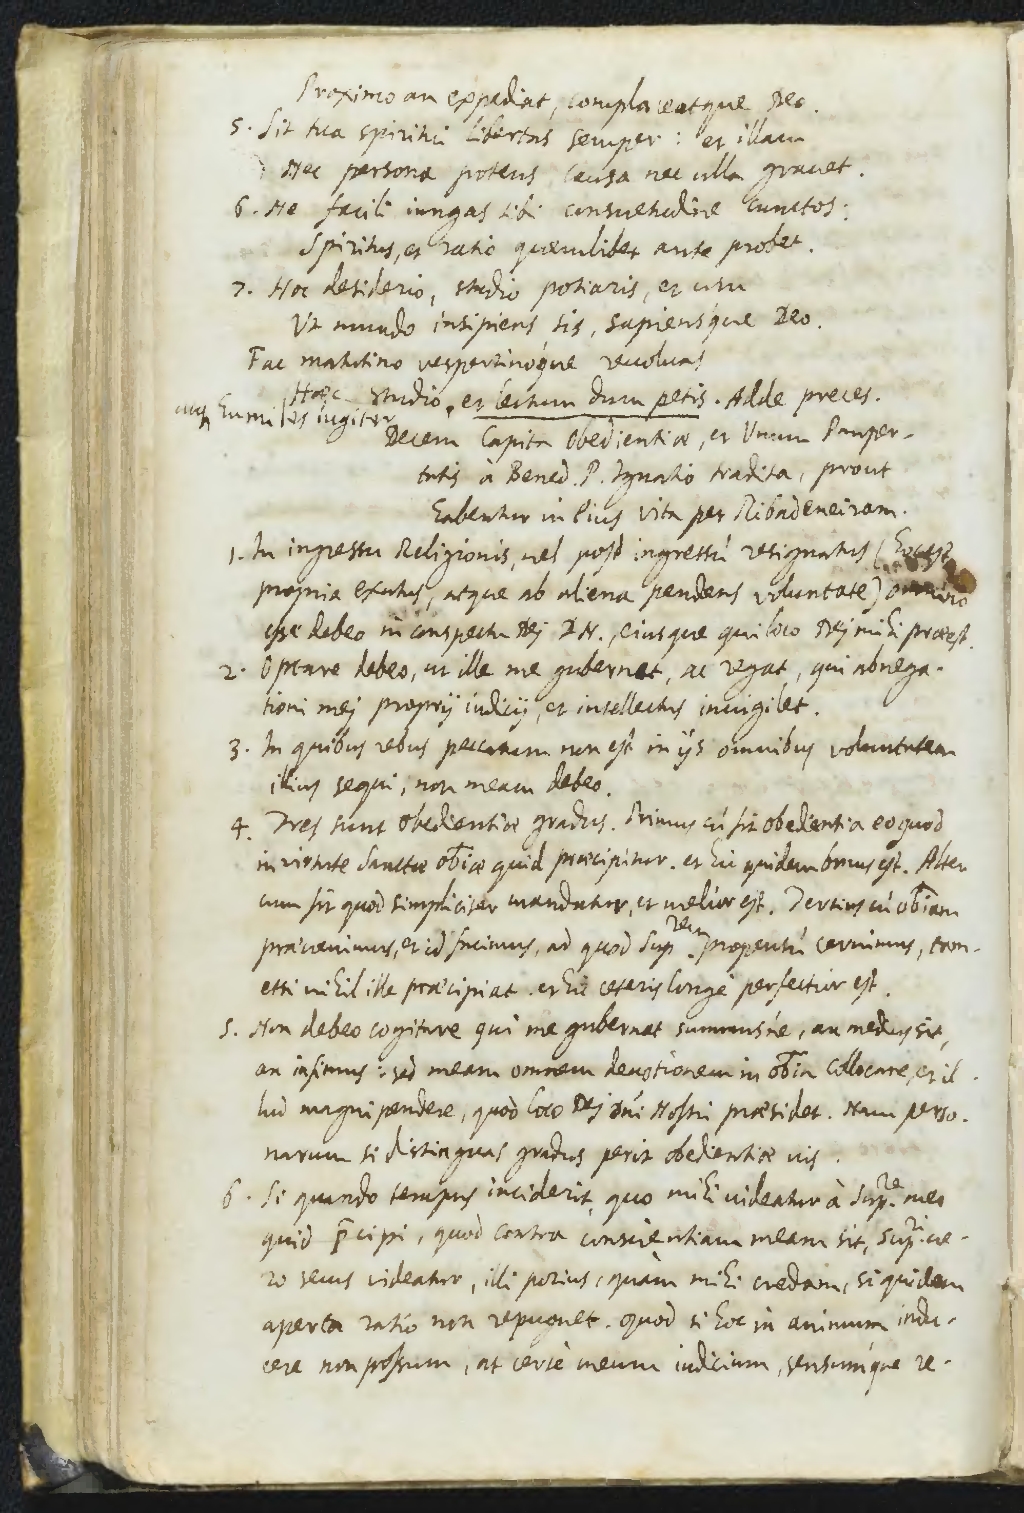 Proximo an expediat, complaceatque Deo.
5. Sit tua spiritui libertas semper: et illam
Nec persona potens, causa nec ulla gravet.
6. Ne facili iungas tibi consuetudine cunctos:
Spiritus, et ratio quemlibet ante probet.
7. Hoc desiderio, studio potiaris, et usu
Ut mundo insipiens sis, sapiensque Deo.
Fac matutino vespertinoque revoluas
Haec studio, et lectum dum petis. Adde preces.
humiles iugiter
Decem Capita Obedientiæ, et Unum Pauper-
tatis à Bened. P. Ignatio tradita, prout
habentur in eius vita per Ribadeneiram.
1. In ingressu Religionis, vel post ingressũ resignatus (hoc est
propria exutus, atque ab aliena pendens voluntate) omnino
esse debeo in conspectu Dej D.N., eiusque qui loco Dej mihi præest.
2. Optare debeo, ut ille me gubernet, ac regat, qui abnega-
tioni mej proprij iudicij, et intellectus invigilet.
3. In quibus rebus peccatum non est in ijs omnibus voluntatem
illius sequi, non meam debeo.
4. Tres sunt obedientiæ gradus. Primus cũ fit obedientia eo quod
in virtute sanctæ obiæ quid præcipitur. et hic quidem bonus est. Alter
cum fit quod simpliciter mandatur, et melior est. Tertius cũ obiam
prævenimus, et id facimus, ad quod Suprem. propensũ cernimus, tam-
etsi nihil ille præcipiat. et hic ceteris longè perfectior est.
5. Non debeo cogitare qui me gubernat summus'ne, an medius sit,
an infimus: sed meam omnem devotionem in obia collocare, et il-
lud magni pendere, quod loco Dej Dñi Nostri præsidet. Nam perso-
narum si distinguas gradus perit obedientiæ vis.
6. Si quando tempus inciderit, quo mihi videatur à Supre. meo
quid p̄cipi, quod contra conscientiam meam sit, Supri. ve-
ro secus videatur, illi potius, quàm mihi credam, siquidem
aperta ratio non repugnet. Quod si hoc in animum indu-
cere non possum, at certè meum iudicium, sensumque re-